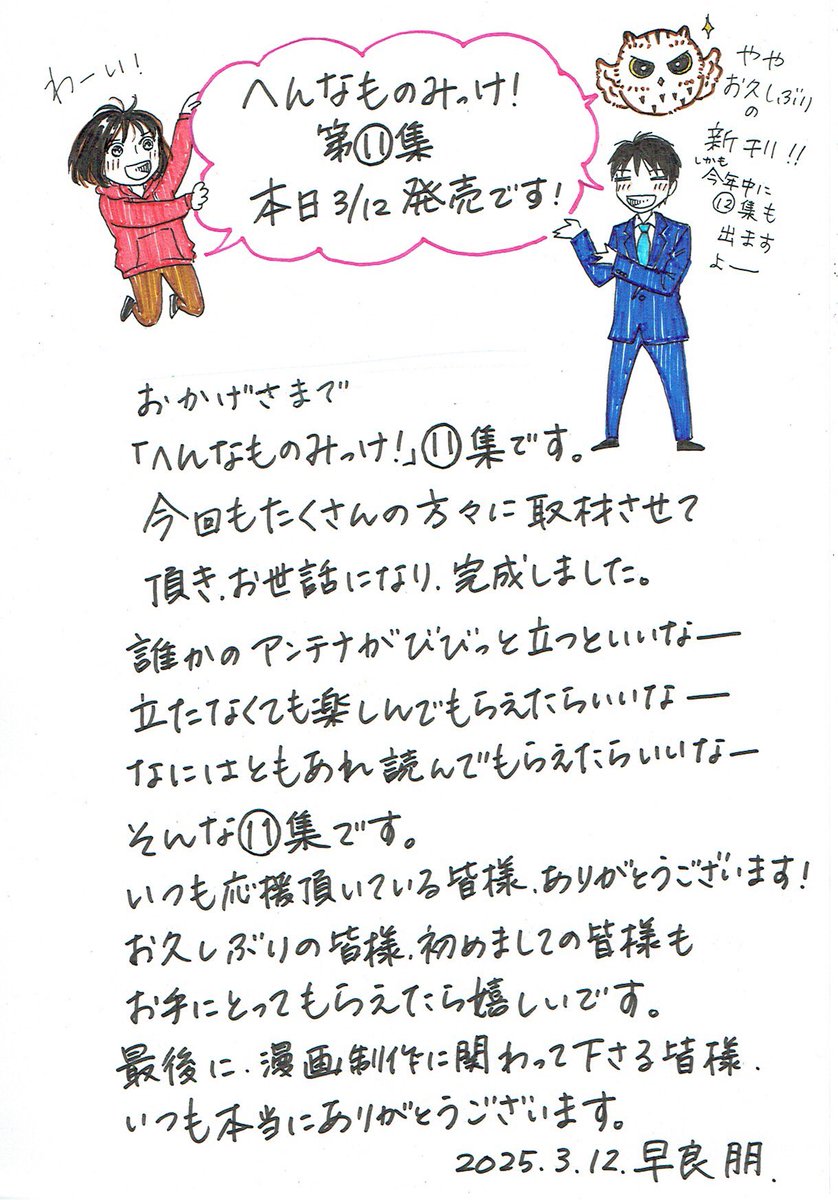 わーい!
へんなものみっけ!
第⑪集
本日3/12発売です!
やや
お久しぶり
の
新刊!!
しかも
今年中に
⑫集も
出ます
よー
おかげさまで
「へんなものみっけ!」⑪集です。
今回もたくさんの方々に取材させて
頂き、お世話になり、完成しました。
誰かのアンテナがびびっと立つといいなー
立たなくても楽しんでもらえたらいいなー
なにはともあれ読んでもらえたらいいなー
そんな⑪集です。
いつも応援頂いている皆様、ありがとうございます!
お久しぶりの皆様、初めましての皆様も
お手にとってもらえたら嬉しいです。
最後に、漫画制作に関わって下さる皆様、
いつも本当にありがとうございます。
2025.3.12.早良朋.